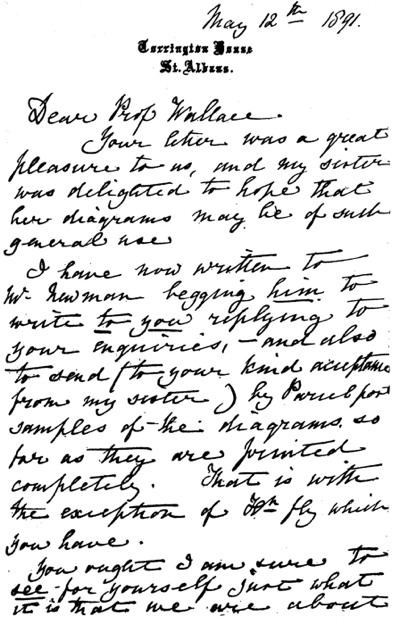 May 12th 1891.
Torrington House
St. Albans.
Dear Prof Wallace
Your letter was a great
pleasure to us, and my sister
was delighted to hope that
her diagrams may be of such
general use
I have now written to
Mr. Newman begging him to
write to you replying to
your enquiries, – and also
to send (to your kind acceptance
from my sister) by Parcel post
samples of the diagrams, so
far as they are printed
completely. That is with
the exception of fly which
you have.
You ought I am sure to
see for yourself just what
it is that we are about